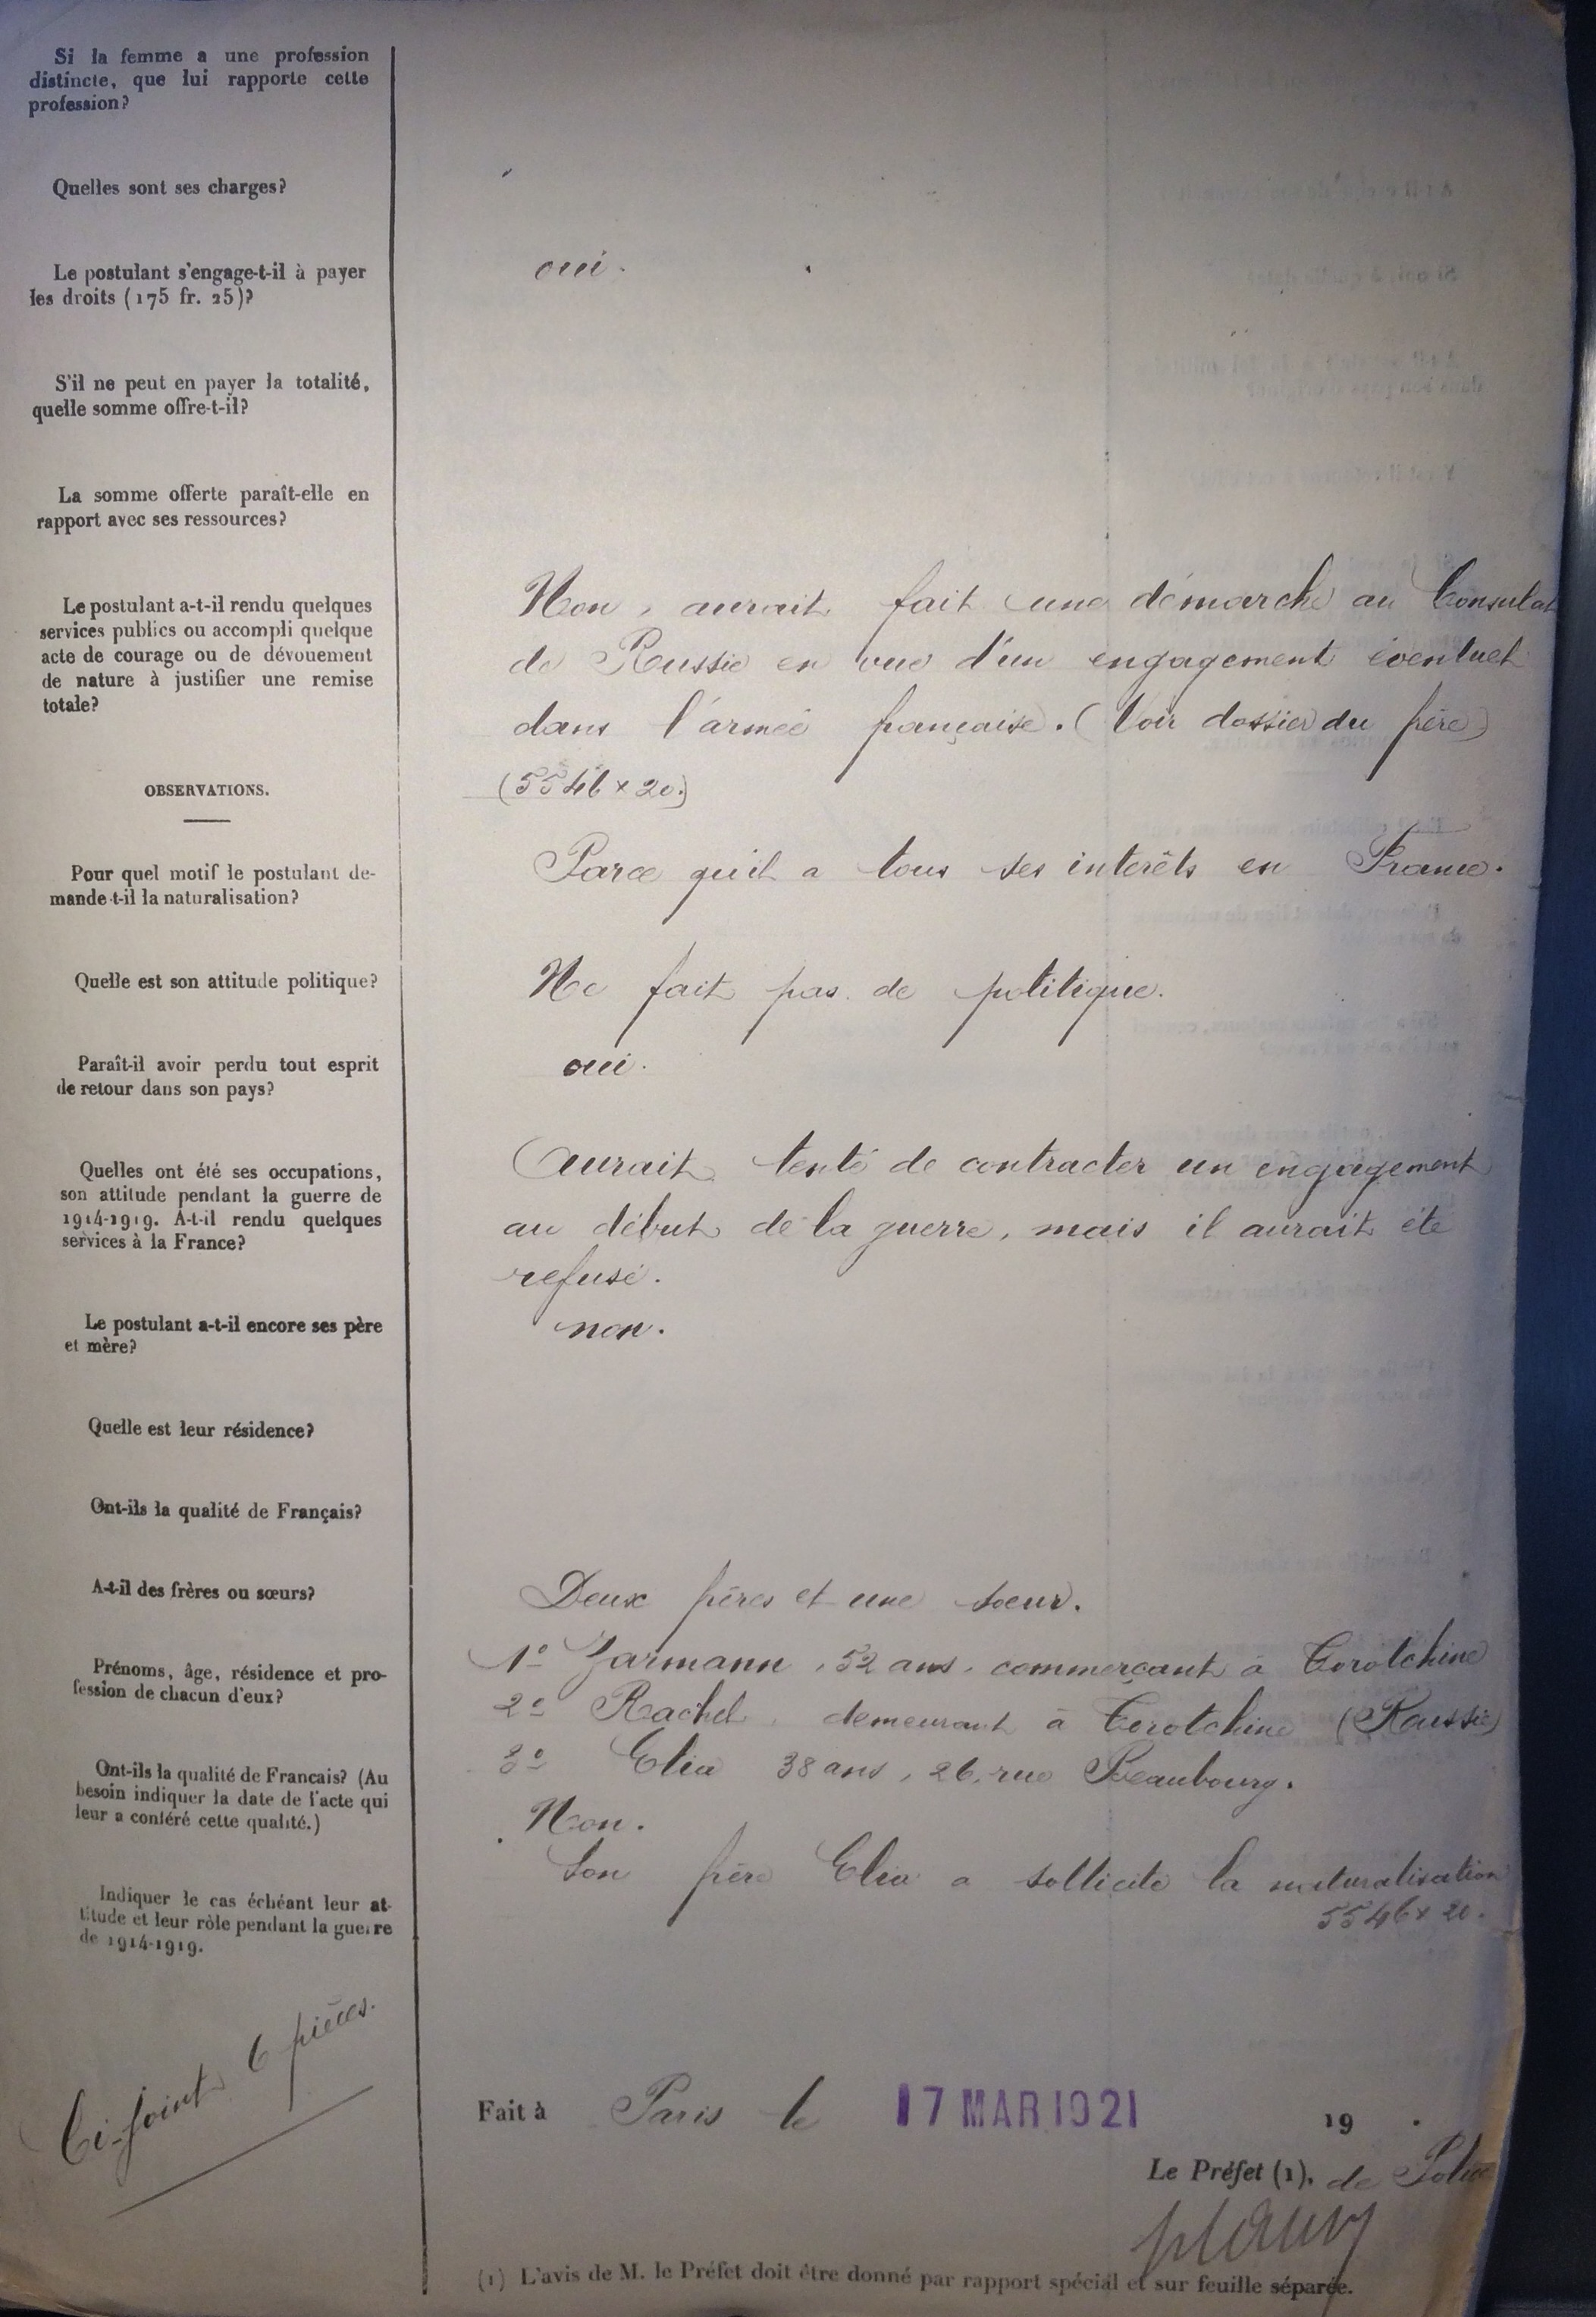 Si la femme a une profession
distincte, que lui rapporte cette
profession?
Quelles sont ses charges?
Le postulant s'engage-t-il à payer
les droits (175 fr. 25)?
oui.
S'il ne peut en payer la totalité,
quelle somme offre-t-il?
La somme offerte paraît-elle en
rapport avec ses ressources?
Le postulant a-t-il rendu quelques
services publics ou accompli quelque
acte de courage ou de dévouement
de nature à justifier une remise
totale?
Non, aurait fait une démarche au Consulat
de Russie en vue d'un engagement éventuel
dans l'armée française. (Voir dossier du frère)
(5546 x 20.)
OBSERVATIONS.
Pour quel motif le postulant de-
mande-t-il la naturalisation?
Parce qu'il a tous ses intérêts en France.
Quelle est son attitude politique?
Ne fait pas de politique.
Paraît-il avoir perdu tout esprit
de retour dans son pays?
oui.
Quelles ont été ses occupations,
son attitude pendant la guerre de
1914-1919. A-t-il rendu quelques
services à la France?
Aurait tenté de contracter un engagement
au début de la guerre, mais il aurait été
refusé.
Le postulant a-t-il encore ses père
et mère?
non.
Quelle est leur résidence?
Ont-ils la qualité de Français?
A-t-il des frères ou sœurs?
Deux frères et une sœur.
Prénoms, âge, résidence et pro-
fession de chacun d'eux?
1º Zarmann, 52 ans, commerçant à Corotchine
2º Rachel, demeurant à Corotchine (Russie)
3º Elia 38 ans, 26, rue Beaubourg.
Ont-ils la qualité de Francais? (Au
besoin indiquer la date de l'acte qui
leur a conféré cette qualité.)
Non.
Indiquer le cas échéant leur at-
titude et leur rôle pendant la guerre
de 1914-1919.
Son frère Elia a sollicité la naturalisation
5546 x 20.
Ci-joint 6 pièces.
Fait à Paris le 17 MAR 1921 19 .
Le Préfet (1), de Police
(1) L'avis de M. le Préfet doit être donné par rapport spécial et sur feuille séparée.